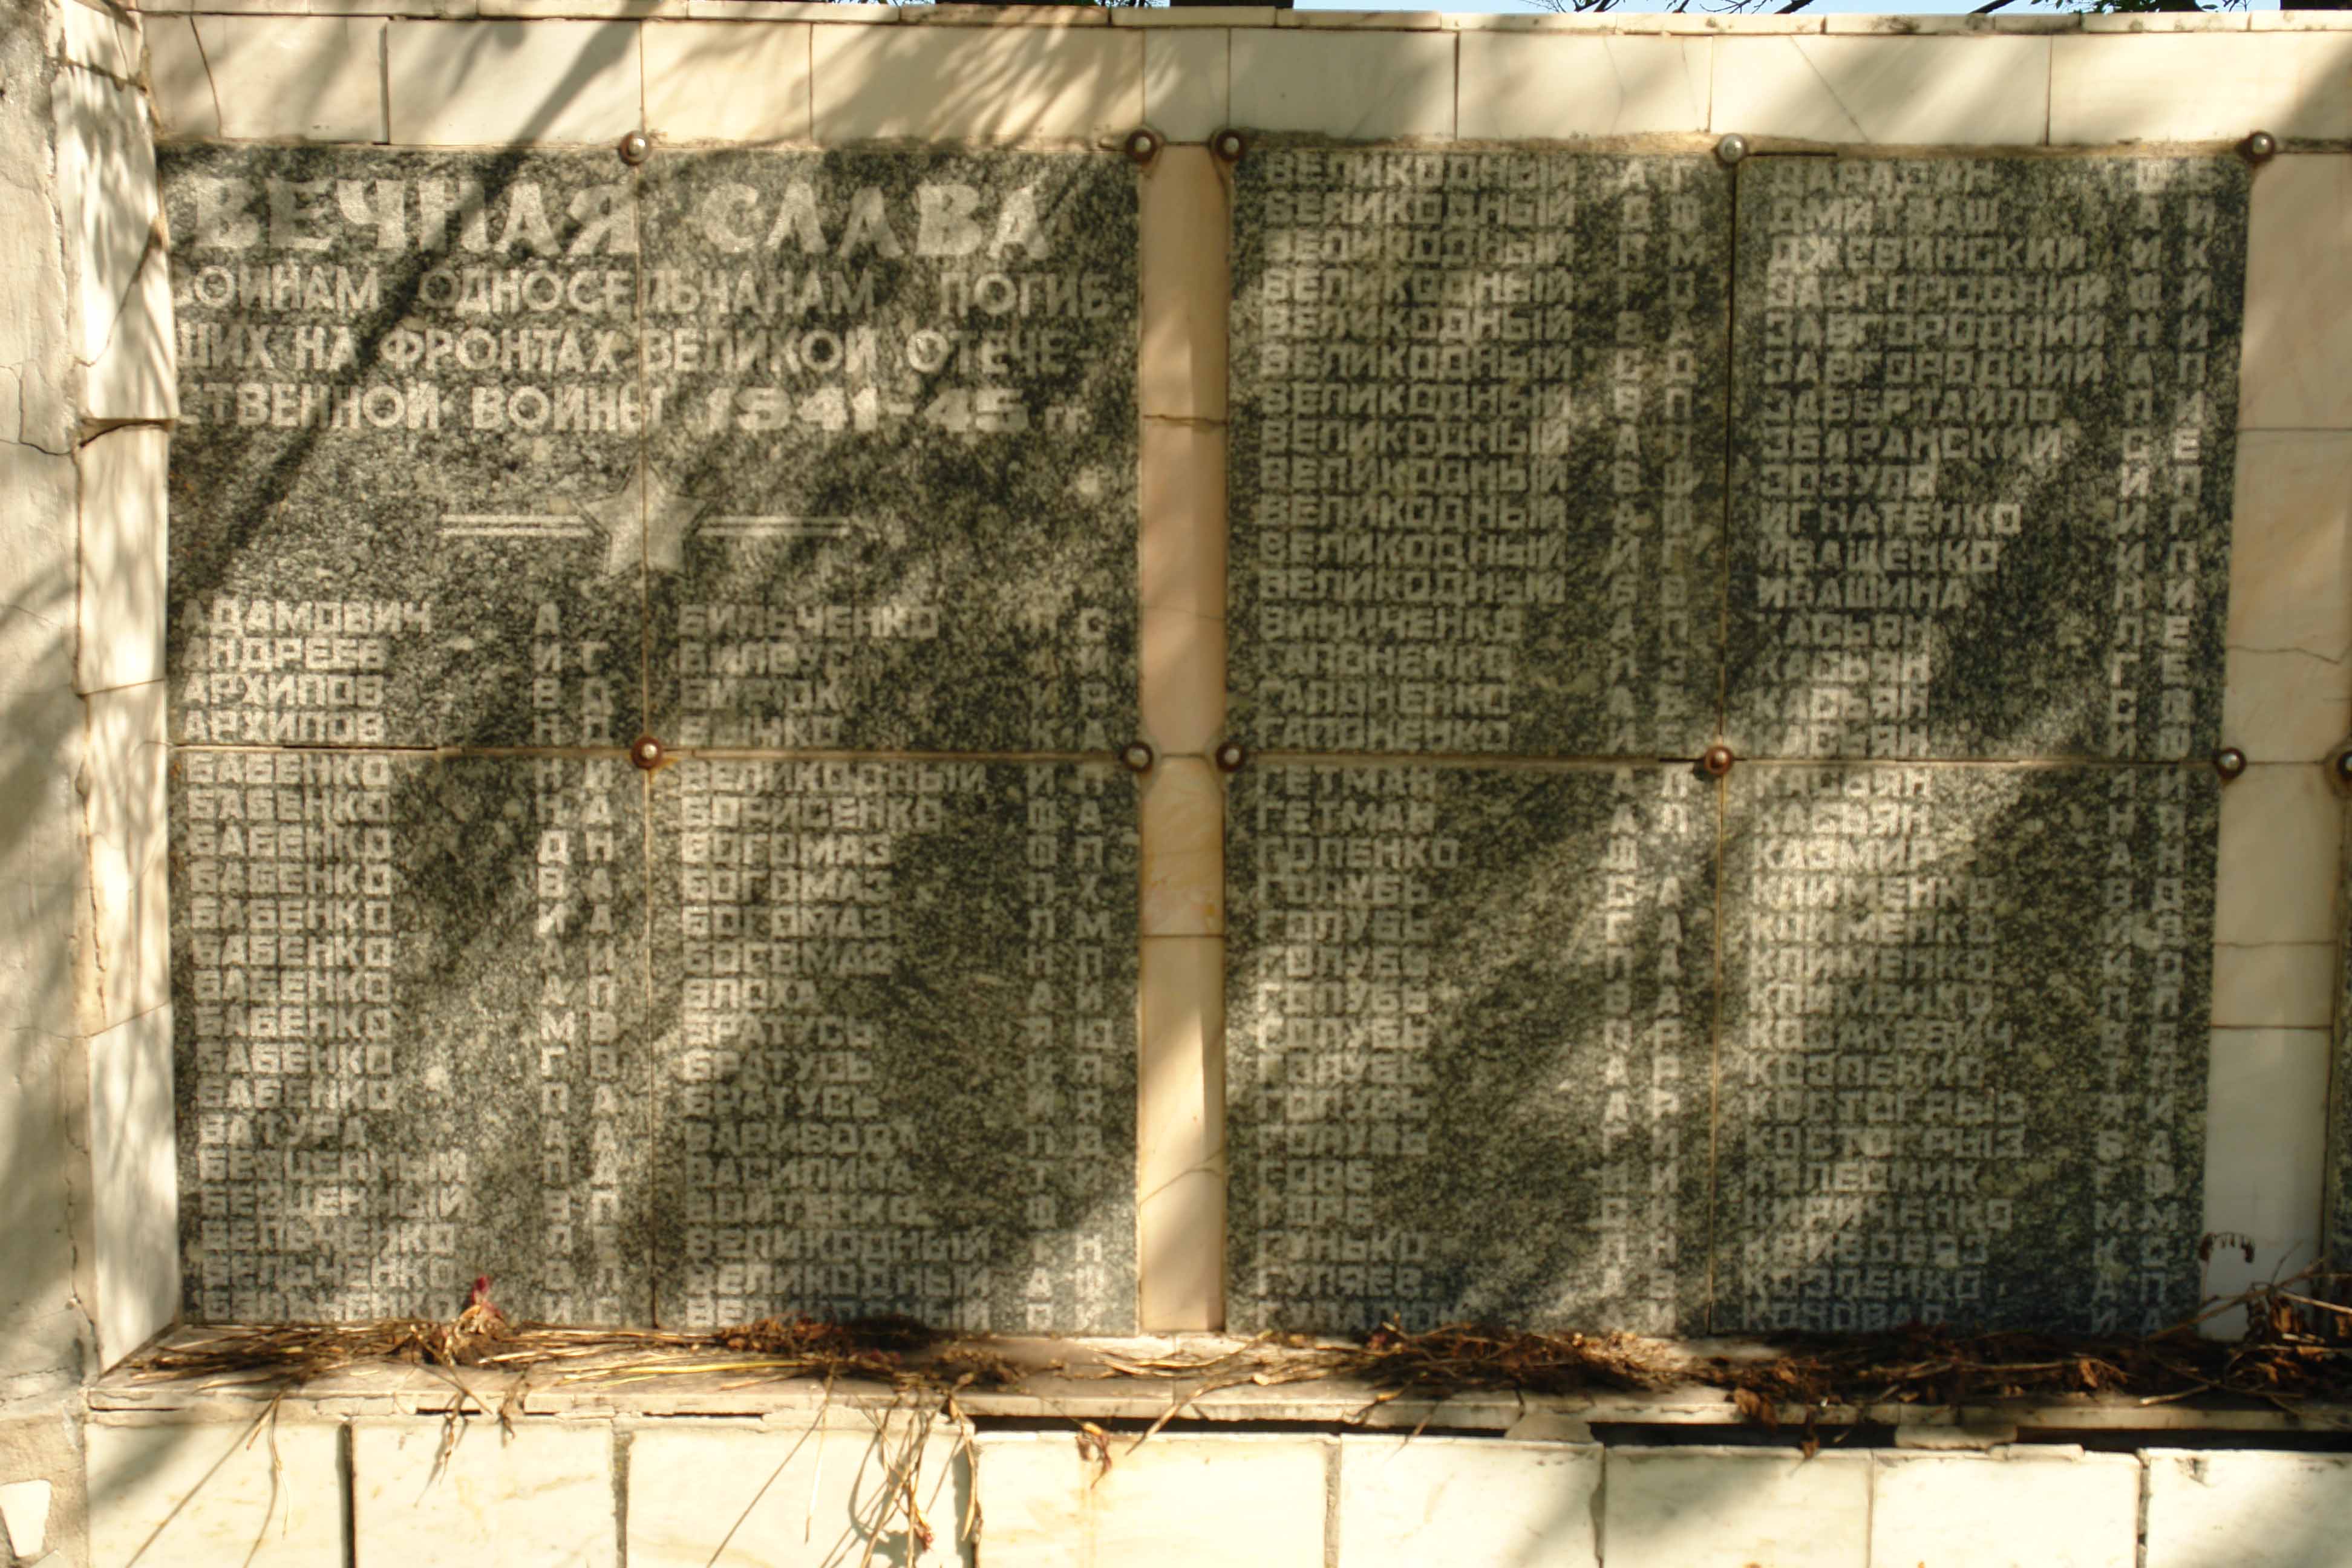 ВЕЧНАЯ СЛАВА
ВОИНАМ ОДНОСЕЛЬЧАНАМ ПОГИБ
ШИХ НА ФРОНТАХ ВЕЛИКОЙ ОТЕЧЕ-
СТВЕННОЙ ВОЙНЫ 1941-45 гг.
АДАМОВИЧ А
АНДРЕЕВ И Г
АРХИПОВ В Д
АРХИПОВ Н Д
БАБЕНКО Н И
БАБЕНКО Н А
БАБЕНКО Д Н
БАБЕНКО В А
БАБЕНКО И А
БАБЕНКО А И
БАБЕНКО А П
БАБЕНКО М В
БАБЕНКО Г
БАБЕНКО П А
БАТУРА А
БЕЗЦЕННЫЙ П А
БЕЗЦЕННЫЙ П
БЕЛЬЧЕНКО
БЕЛЬЧЕНКО Л
БЕЛЬЧЕНКО И С
БИЛЬЧЕНКО С
БИЛОУС И
БИРЮК И
ВЕЛИКОДНЫЙ И
БОРИСЕНКО Ф А
БОГОМАЗ Ф П
БОГОМАЗ П Х
БОГОМАЗ Л М
БОГОМАЗ Н П
БЛОХА А И
БРАТУСЬ Ю
БРАТУСЬ Я Л
БРАТУСЬ И Я
ВАРИВОДА П Д
ВАСИЛИНА Т И
ВОЙТЕНКО Ф
ВЕЛИКОДНЫЙ Н
ВЕЛИКОДНЫЙ А Ф
ВЕЛИКОДНЫЙ П
ВЕЛИКОДНЫЙ А Г
ВЕЛИКОДНЫЙ Д Ф
ВЕЛИКОДНЫЙ П М
ВЕЛИКОДНЫЙ Г О
ВЕЛИКОДНЫЙ В А
ВЕЛИКОДНЫЙ С О
ВЕЛИКОДНЫЙ В П
ВЕЛИКОДНЫЙ А П
ВЕЛИКОДНЫЙ В Ф
ВЕЛИКОДНЫЙ А Ф
ВЕЛИКОДНЫЙ И Г
ВЕЛИКОДНЫЙ В В
ВИНИЧЕНКО А П
ГАПОНЕНКО Л З
ГАПОНЕНКО А Е
ГАПОНЕНКО Л Е
ГЕТМАН А Л
ГЕТМАН А П
ГОЛЕНКО Ф
ГОЛУБЬ С А
ГОЛУБЬ Г А
ГОЛУБЬ П А
ГОЛУБЬ В А
ГОЛУБЬ П А
ГОЛУБЬ А Г
ГОЛУБЬ А Г
ГОЛУБЬ Г И
ГОРБ И
ГОРБ П И
ГУНЬКО П Н
ГУЛЯЕВ Л Б
ДАРАДАН
ДМИТРАШ А И
ДЖЕВИНСКИЙ И К
ЗАВГОРОДНИЙ Ф И
ЗАВГОРОДНИЙ Н И
ЗАВГОРОДНИЙ А П
ЗАВЕРТАЙЛО П И
ЗБАРАНСКИЙ С Е
ЗОЗУЛЯ И П
ИГНАТЕНКО И Г
ИВАЩЕНКО И П
ИВАШИНА Н И
КАСЬЯН Л Е
КАСЬЯН Г Е
КАСЬЯН С Д
КАСЬЯН И Ф
КАСЬЯН И И
КАСЬЯН Н
КАЗМИР А Н
КЛИМЕНКО В Д
КЛИМЕНКО И
КЛИМЕНКО И
КЛИМЕНКО П
КОЗЛЕНКО
КОСТОГРЫЗ И
КОСТОГРЫЗ Б А
КОЛЕСНИК
КИРИЧЕНКО М М
КРИВОВЯЗ К С
КОЗЛЕНКО А П
КОНОВАЛ И А